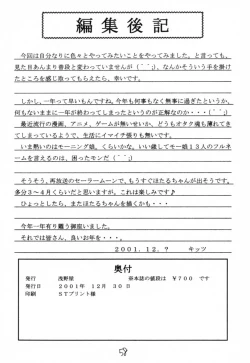 編集後記
今回は自分なりに色々とやってみたいことをやってみました。と言っても、
見た目あんまり普段と変わっていませんが(＾＾;)、なんかそういう手を掛け
たところを感じ取ってもらえたら、幸いです。
しかし、一年って早いもんですね。今年も何事もなく無事に過ぎたというか、
何もないままに一年が終わってしまったというのが正解なのか・・・(＾＾;)
最近流行の漫画、アニメ、ゲームが無いせいか、どうもオタク魂も薄れてき
てしまっているようで、生活にイマイチ張りも無いです。
いま熱いのはモーニング娘。くらいかな。いい歳してモー娘１３人のフルネ
ームを言えるのは、困ったモンだ(＾＾;)
そうそう、再放送のセーラームーンで、もうすぐほたるちゃんが出そうです。
多分３～４月くらいだと思いますが。これは楽しみです♪
ひょっとしたら、またほたるちゃんを描くかも・・・
今年一年有り難う御座いました。
それでは皆さん、良いお年を・・・。
２００１．１２．？　キッツ
奥付
発行　浅野屋　※本誌の値段は　￥７００　です
発行日　２００１年　１２月　３０日
印刷　ＳＴプリント様
58